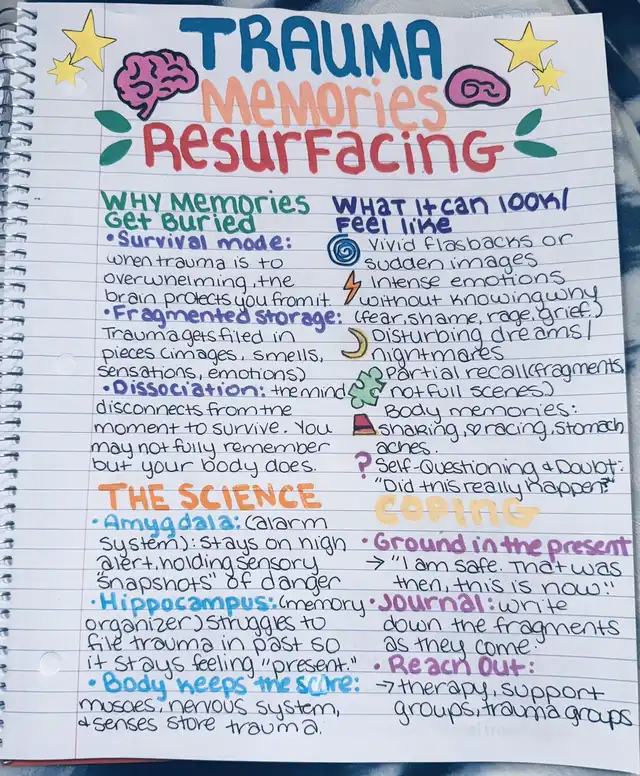 TRAUMA
Memories
Resurfacing
WHY Memories
Get Buried
•Survival mode:
when trauma is to
overwhelming, the
brain protects you from it
•Fragmented storage:
Trauma gets filed in
pieces (images, smells,
sensations, emotions)
•Dissociation: the mind
disconnects from the
moment to survive. You
may not fully remember
but your body does.
WHAT it can look/
Feel like
Vivid flasbacks or
sudden images
Intense emotions
without knowing why
(fear, shame, rage, grief)
Disturbing dreams/
nightmares
Partial recall (fragments,
not full scenes)
Body memories:
shaking, racing, stomach
aches.
? Self-Questioning & Doubt:
"Did this really happen?"
THE SCIENCE
•Amygdala: (alarm
system): stays on high
alert, holding sensory
"snapshots" of danger
•Hippocampus: (memory
organizer) struggles to
file trauma in past so
it stays feeling "present."
•Body keeps the score:
muscles, nervous system,
& senses store trauma.
COPING
•Ground in the present
→ "I am safe. That was
then, this is now."
•Journal: write
down the fragments
as they come.
•Reach Out:
→ therapy, support
groups, trauma groups